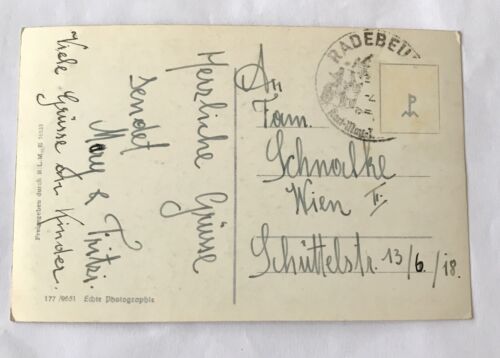 Herzliche Grüsse
sendet
Mary & Fritzi.
Viele Grüsse den Kinder.
Freigegeben durch R.L.M./
177/9651 Echte Photographie
RADEBEU
Karl-May-
An
Fam.
Schnalke
Wien II.
Schüttelstr. 13/6./18.